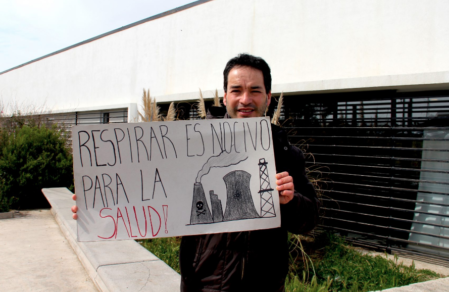 RESPIRAR ES NOCIVO
PARA LA
SALUD!!